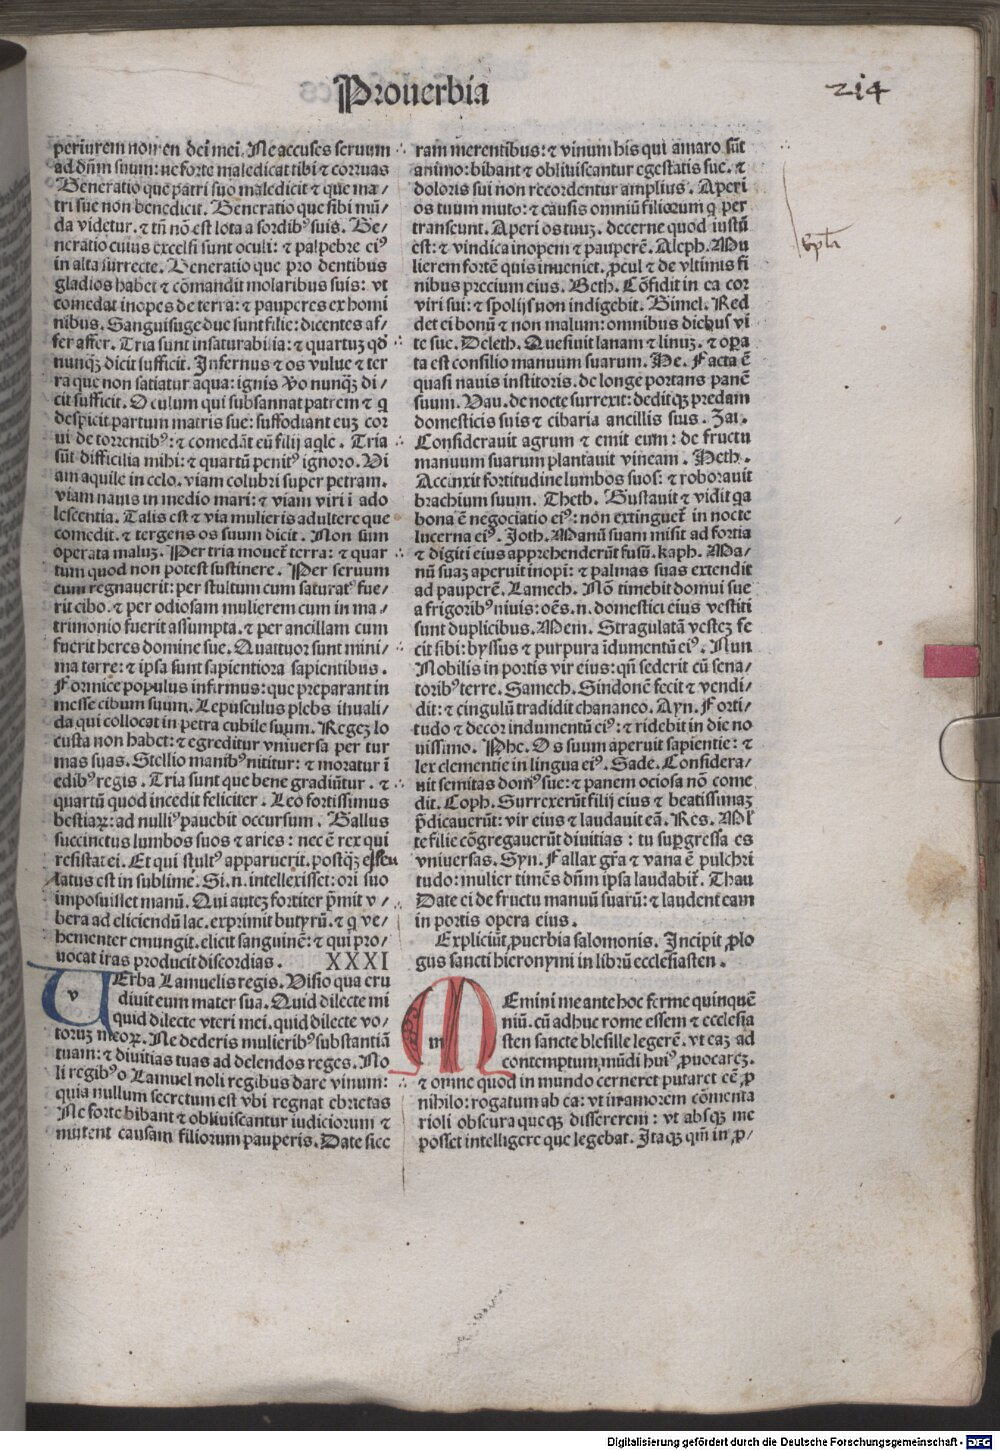 Prouerbia
214
periurem nomen dei mei. Ne accuses seruum
ad dñm suum: ne forte maledicat tibi ⁊ corruas
Generatio que patri suo maledicit ⁊ que ma/
tri sue non benedicit. Generatio que sibi mũ/
da videtur. ⁊ tñ nõ est lota a sordibꝰ suis. Ge/
neratio cuius excelsi sunt oculi: ⁊ palpebre eiꝰ
in alta surrecte. Generatio que pro dentibus
gladios habet ⁊ cõmandit molaribus suis: vt
comedat inopes de terra: ⁊ pauperes ex homi
nibus. Sanguisuge due sunt filie: dicentes af/
fer affer. Tria sunt insaturabilia: ⁊ quartuꝫ qđ
nunqꝫ dicit sufficit. Infernus ⁊ os vulue ⁊ ter
ra que non satiatur aqua: ignis ṽo nunqꝫ di/
cit sufficit. Oculum qui subsannat patrem ⁊ q
despicit partum matris sue: suffodiant euꝫ cor
ui de torrentibꝰ: ⁊ comedãt eũ filij aqle. Tria
sũt difficilia mihi: ⁊ quartũ penitꝰ ignoro. Vi
am aquile in celo. viam colubri super petram.
viam nauis in medio mari: ⁊ viam viri ĩ ado
lescentia. Talis est ⁊ via mulieris adultere que
comedit. ⁊ tergens os suum dicit. Non sum
operata maluꝫ. Per tria mouet̃ terra: ⁊ quar
tum quod non potest sustinere. Per seruum
cum regnauerit: per stultum cum saturatꝰ fue/
rit cibo. ⁊ per odiosam mulierem cum in ma/
trimonio fuerit assumpta. ⁊ per ancillam cum
fuerit heres domine sue. Quattuor sunt mini/
ma terre: ⁊ ipsa sunt sapientiora sapientibus.
Formice populus infirmus: que preparant in
messe cibum suum. Lepusculus plebs inuali/
da qui collocat in petra cubile suum. Regeꝫ lo
custa non habet: ⁊ egreditur vniuersa per tur
mas suas. Stellio manibꝰ nititur: ⁊ moratur ĩ
edibꝰ regis. Tria sunt que bene gradiũtur. ⁊
quartũ quod incedit feliciter. Leo fortissimus
bestiaꝝ: ad nulliꝰ pauebit occursum. Gallus
succinctus lumbos suos ⁊ aries: nec ẽ rex qui
resistat ei. Et qui stultꝰ apparuerit. postqꝫ eleu
latus est in sublime. Si.n. intellexisset: ori suo
imposuisset manũ. Qui auteꝫ fortiter p̃mit v/
bera ad eliciendũ lac. exprimit butyrũ. ⁊ q ve/
hementer emungit. elicit sanguinẽ: ⁊ qui pro/
uocat iras producit discordias. XXXI
v Erba Lamuelis regis. Visio qua eru
diuit eum mater sua. Quid dilecte mi
quid dilecte vteri mei. quid dilecte vo/
toruꝫ meoꝝ. Ne dederis mulieribꝰ substantiã
tuam: ⁊ diuitias tuas ad delendos reges. No
li regibꝰ o Lamuel noli regibus dare vinum:
quia nullum secretum est vbi regnat ebrietas
Ne forte bibant ⁊ obliuiscantur iudiciorum ⁊
mutent causam filiorum pauperis. Date sice
ram merentibus: ⁊ vinum his qui amaro sũt
animo: bibant ⁊ obliuiscantur egestatis sue. ⁊
doloris sui non recordentur amplius. Aperi
os tuum muto: ⁊ causis omniũ filiorum q per
transeunt. Aperi os tuuꝫ. decerne quod iustũ
est: ⁊ vindica inopem ⁊ pauperẽ. Aleph. Mu
lierem fortẽ quis inueniet. ꝓcul ⁊ de vltimis fi
nibus precium eius. Beth. Cõfidit in ea cor
viri sui: ⁊ spolijs non indigebit. Gimel. Red
det ei bonũ ⁊ non malum: omnibus diebus vi
te sue. Deleth. Quesiuit lanam ⁊ linuꝫ. ⁊ oꝑa
ta est consilio manuum suarum. He. Facta ẽ
quasi nauis institoris. de longe portans panẽ
suum. Vau. de nocte surrexit: deditqꝫ predam
domesticis suis ⁊ cibaria ancillis suis. Zai.
Considerauit agrum ⁊ emit eum: de fructu
manuum suarum plantauit vineam. Heth.
Accinxit fortitudine lumbos suos: ⁊ roborauit
brachium suum. Theth. Gustauit ⁊ vidit qa
bona ẽ negociatio eiꝰ: non extinguet̃ in nocte
lucerna eiꝰ. Joth. Manũ suam misit ad fortia
⁊ digiti eius apprehenderũt fusũ. kaph. Ma/
nũ suaꝫ aperuit inopi: ⁊ palmas suas extendit
ad pauperẽ. Lamech. Nõ timebit domui sue
a frigoribꝰ niuis: oẽs.n. domestici eius vestiti
sunt duplicibus. Mem. Stragulatã vesteꝫ fe
cit sibi: byssus ⁊ purpura ĩdumentũ eiꝰ. Nun
Nobilis in portis vir eius: qñ sederit cũ sena/
toribꝰ terre. Samech. Sindonẽ fecit ⁊ vendi/
dit: ⁊ cingulũ tradidit chananeo. Ayn. Forti/
tudo ⁊ decor indumentũ eiꝰ: ⁊ ridebit in die no
uissimo. Phe. Os suum aperuit sapientie: ⁊
lex clementie in lingua eiꝰ. Sade. Considera/
uit semitas domꝰ sue: ⁊ panem ociosa nõ come
dit. Coph. Surrexerũt filij eius ⁊ beatissimaꝫ
p̃dicauerũt: vir eius ⁊ laudauit eã. Res. Ml̃
te filie cõgregauerũt diuitias: tu suꝑgressa es
vniuersas. Syn. Fallax gr̃a ⁊ vana ẽ pulchri
tudo: mulier timẽs dñm ipsa laudabit̃. Thau
Date ei de fructu manuũ suarũ: ⁊ laudent eam
in portis opera eius.
Expliciũt ꝓuerbia salomonis. Incipit ꝓlo
gus sancti hieronymi in librũ ecclesiasten.
m Emini me ante hoc ferme quinquẽ
niũ. cũ adhuc rome essem ⁊ ecclesia
sten sancte blesille legerẽ. vt eaꝫ ad
contemptum mũdi huiꝰ ꝓuocareꝫ.
⁊ omne quod in mundo cerneret putaret eẽ ꝓ
nihilo: rogatum ab ea: vt in morem cõmenta
rioli obscura queqꝫ dissererem: vt absqꝫ me
posset intelligere que legebat. Itaqꝫ qm̃ in ꝓ/
Digitalisierung gefördert durch die Deutsche Forschungsgemeinschaft - DFG